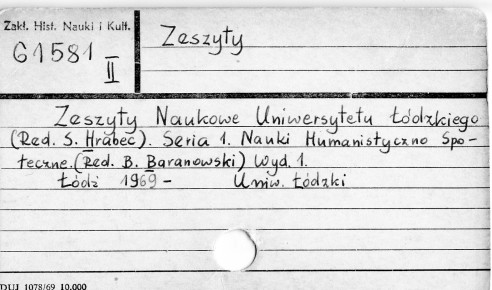 Zakł. Hist. Nauki i Kult.
G1581
II
Zeszyty
Zeszyty Naukowe Uniwersytetu Łódzkiego
(Red. S. Hrabec). Seria 1. Nauki Humanistyczno Spo-
łeczne. (Red. B. Baranowski) Wyd. 1.
Łódź 1969 - Uniw. Łódzki
DUJ 1078/69 10.000